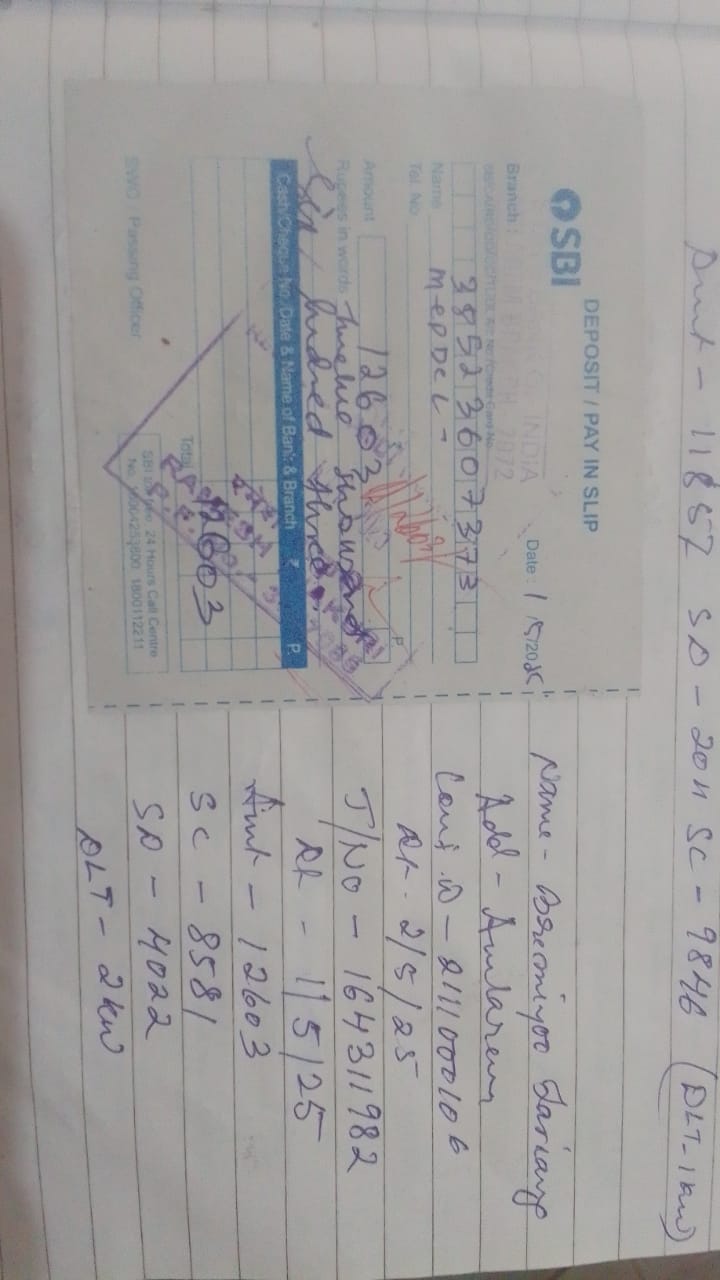 Amt - 11857 SD - 2011 SC - 9846 (DLT-1kw)
DEPOSIT / PAY IN SLIP
SBI
Date: 1/5/2025
Branch:
38523607373
Name MePDCL -
Tel. No.
Amount 12603
Rupees in words Twelve thousand
Six hundred three
Cash/Cheque No. Date & Name of Bank & Branch ₹ P.
Total 12603
SWO Passing Officer
SBI 24 Hours Call Centre
1800112211
Name -
Add - Amlarem
Cons. ID - 2111000106
Dt - 2/5/25
T/No - 164311982
Dt - 1/5/25
Amt - 12603
SC - 8581
SD - 4022
DLT - 2kw